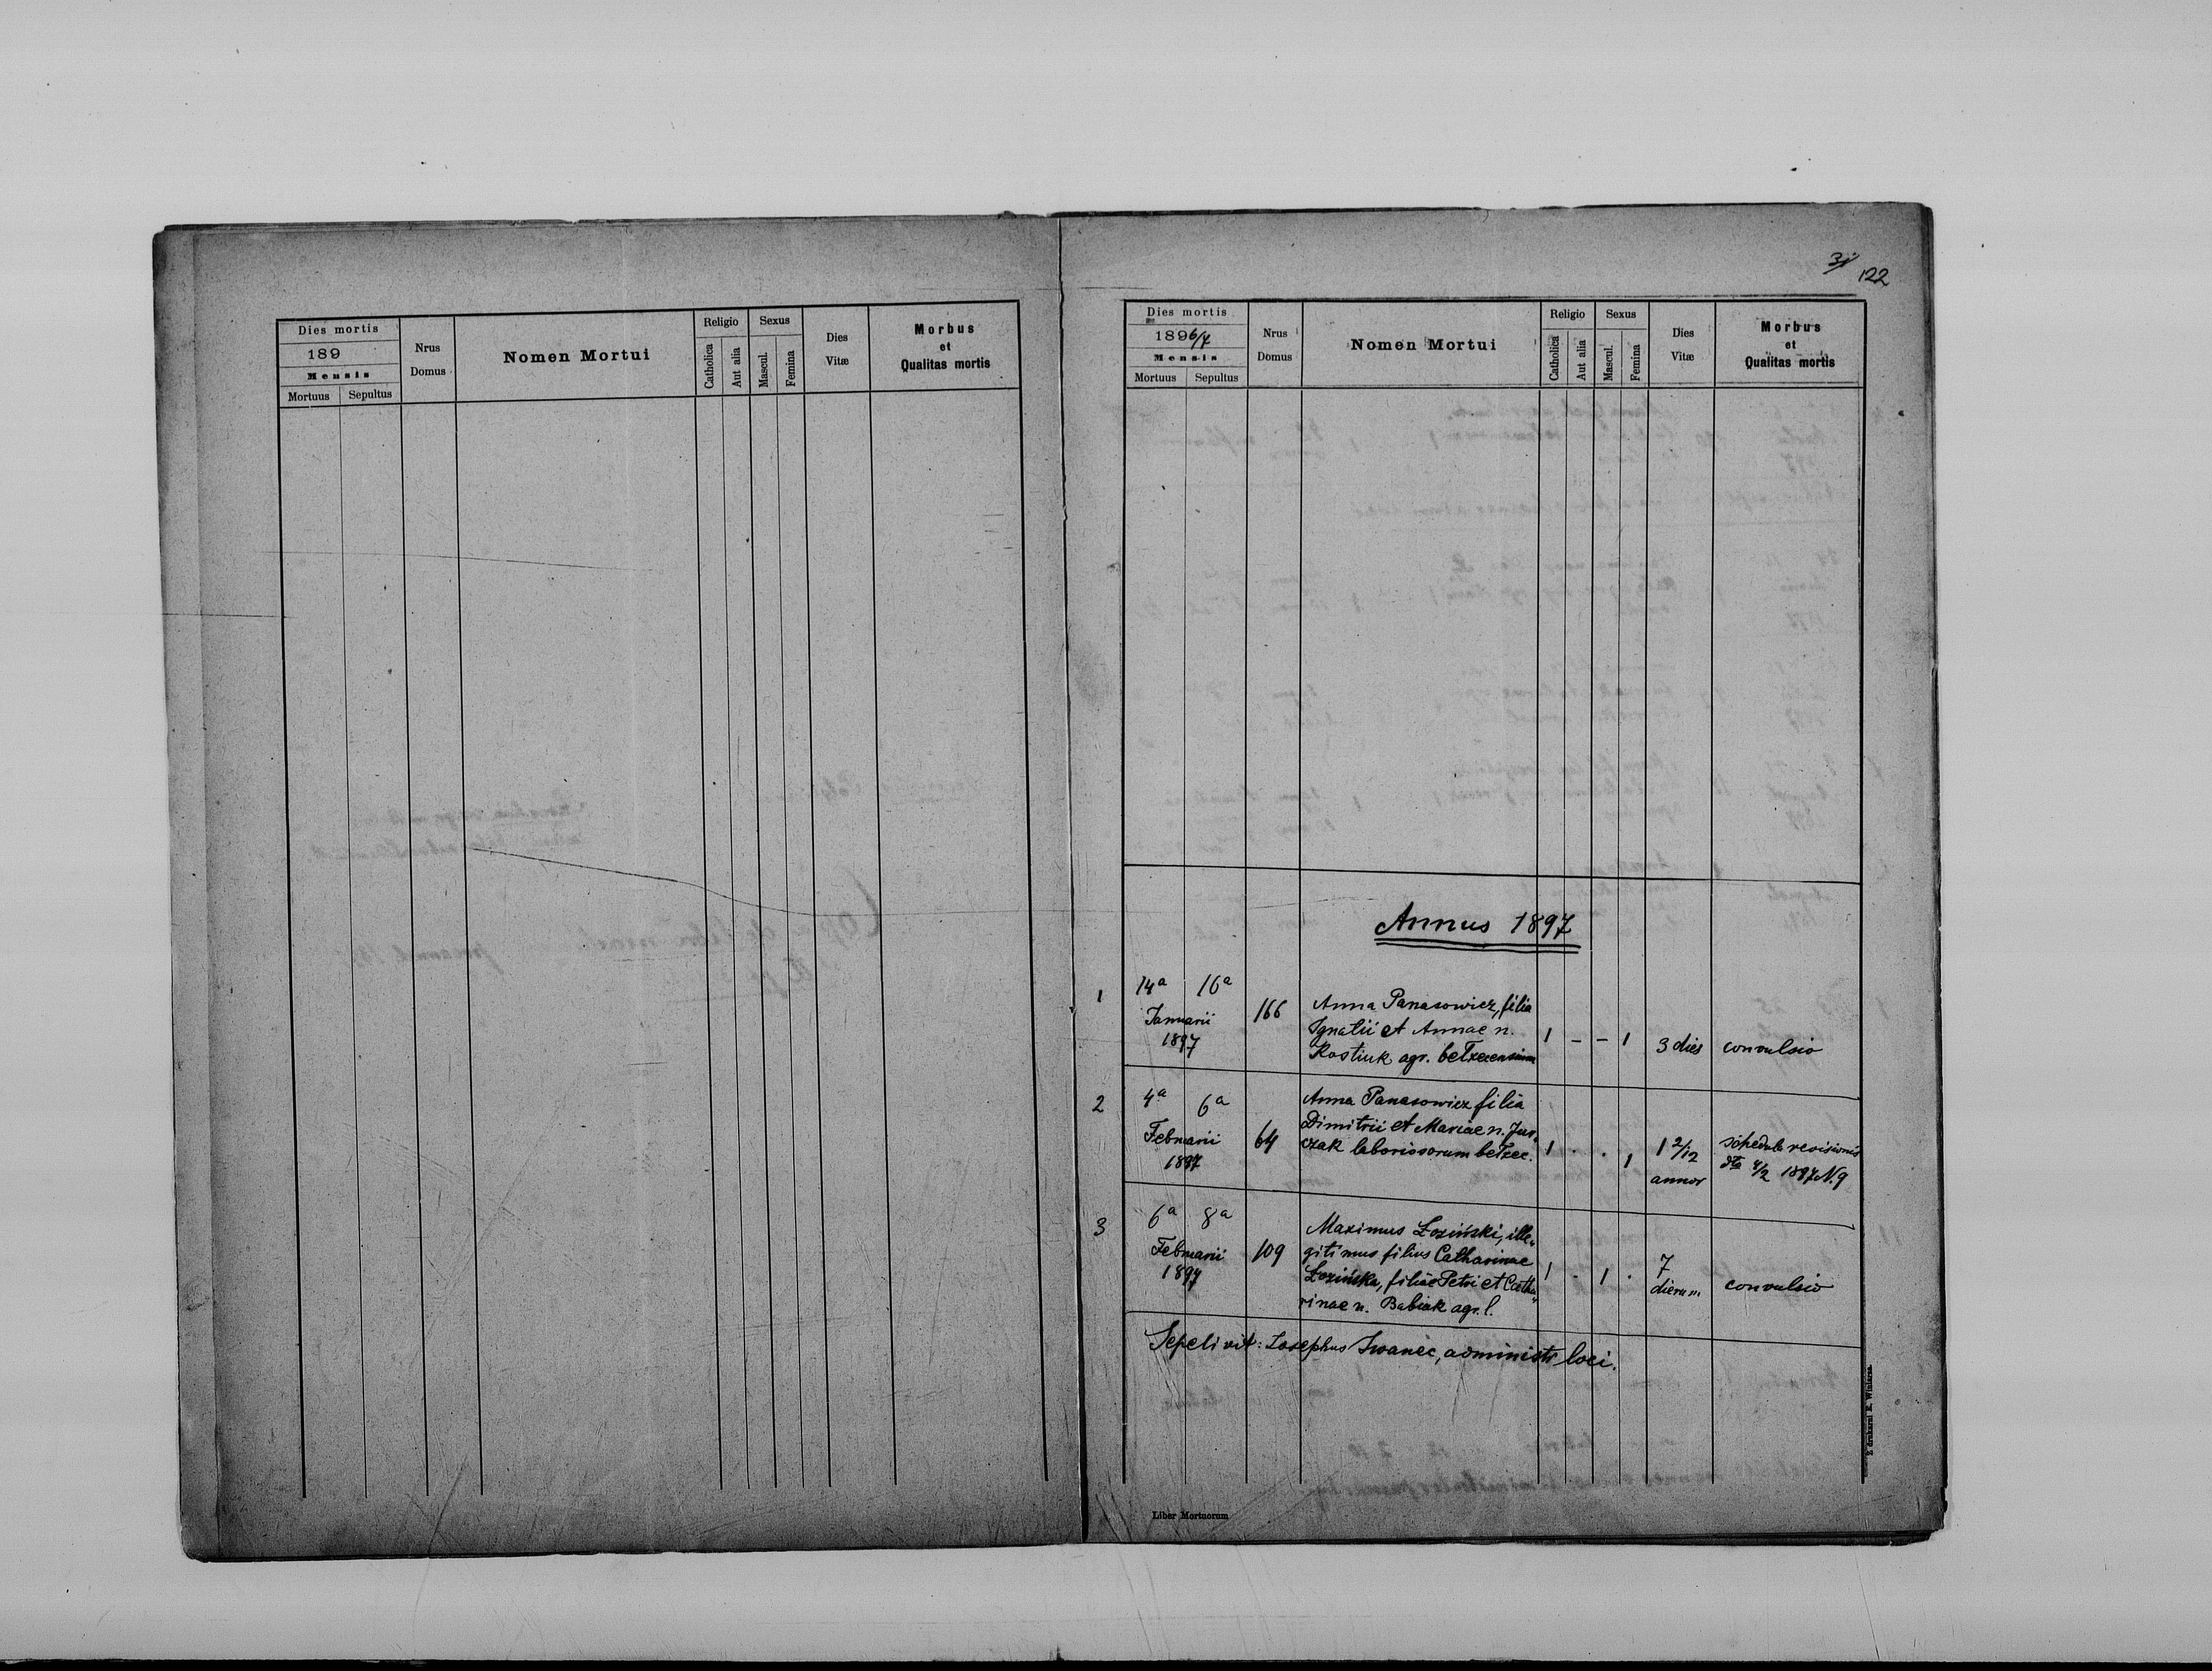 Dies mortis
189
Mensis
Mortuus Sepultus
Nrus
Domus
Nomen Mortui
Religio
Catholica
Aut alia
Sexus
Mascul.
Femina
Dies
Vitæ
Morbus
et
Qualitas mortis
122
Dies mortis
1896/7
Mensis
Mortuus Sepultus
Nrus
Domus
Nomen Mortui
Religio
Catholica
Aut alia
Sexus
Mascul.
Femina
Dies
Vitæ
Morbus
et
Qualitas mortis
Annus 1897
1 14a 16a
Januarii
1897
166
Anna Panasowicz, filia
Ignatii et Annae n.
Kostiuk agr. bełzecensium
1 - - 1
3 dies
convulsio
2 4a 6a
Februarii
1897
64
Anna Panasowicz filia
Dimitrii et Mariae n. Jur-
czak laboriosorum bełzec.
1 . . 1
1 2/12
annor
schedula revisionis
dto 4/2 1897 N. 9
3 6a 8a
Februarii
1897
109
Maximus Łoziński, ille„
gitimus filius Catharinae
Łozińska, filiae Petri et Catha„
rinae n. Babiak agr. l.
1 . 1 .
7
dierum
convulsio
Sepelivit: Josephus Iwanec, administr loci.
Liber Mortuorum
Z drukarni E. Winiarza.